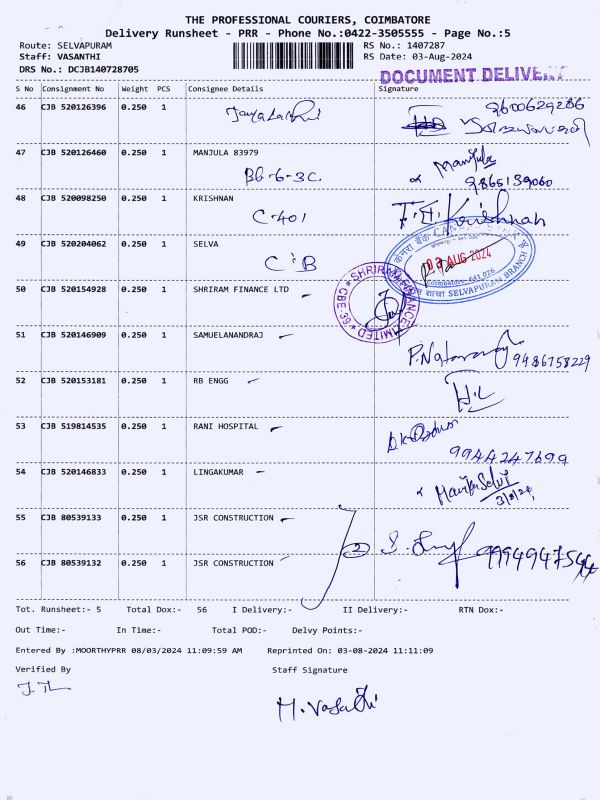 THE PROFESSIONAL COURIERS, COIMBATORE
Delivery Runsheet - PRR - Phone No.:0422-3505555 - Page No.:5
Route: SELVAPURAM RS No.: 1407287
Staff: VASANTHI RS Date: 03-Aug-2024
DRS No.: DCJB140728705 DOCUMENT DELIVERY
S No Consignment No Weight PCS Consignee Details Signature
46 CJB 520126396 0.250 1 9600629286
47 CJB 520126460 0.250 1 MANJULA 83979 Manjula
Bb-6-3C. 9865139060
48 CJB 520098250 0.250 1 KRISHNAN Krishnan
C-401
49 CJB 520204062 0.250 1 SELVA
C B
केनरा बैंक CANARA BANK
03 AUG 2024
Coimbatore-641 026
शाखा SELVAPURAM BRANCH
50 CJB 520154928 0.250 1 SHRIRAM FINANCE LTD
SHRIRAM FINANCE LIMITED CBE-39
51 CJB 520146909 0.250 1 SAMUELANANDRAJ
9486758229
52 CJB 520153181 0.250 1 RB ENGG
53 CJB 519814535 0.250 1 RANI HOSPITAL
9944247699
54 CJB 520146833 0.250 1 LINGAKUMAR
3/8/24
55 CJB 80539133 0.250 1 JSR CONSTRUCTION
2 9994947544
56 CJB 80539132 0.250 1 JSR CONSTRUCTION
Tot. Runsheet:- 5 Total Dox:- 56 I Delivery:- II Delivery:- RTN Dox:-
Out Time:- In Time:- Total POD:- Delvy Points:-
Entered By :MOORTHYPRR 08/03/2024 11:09:59 AM Reprinted On: 03-08-2024 11:11:09
Verified By Staff Signature
M. Vasathi